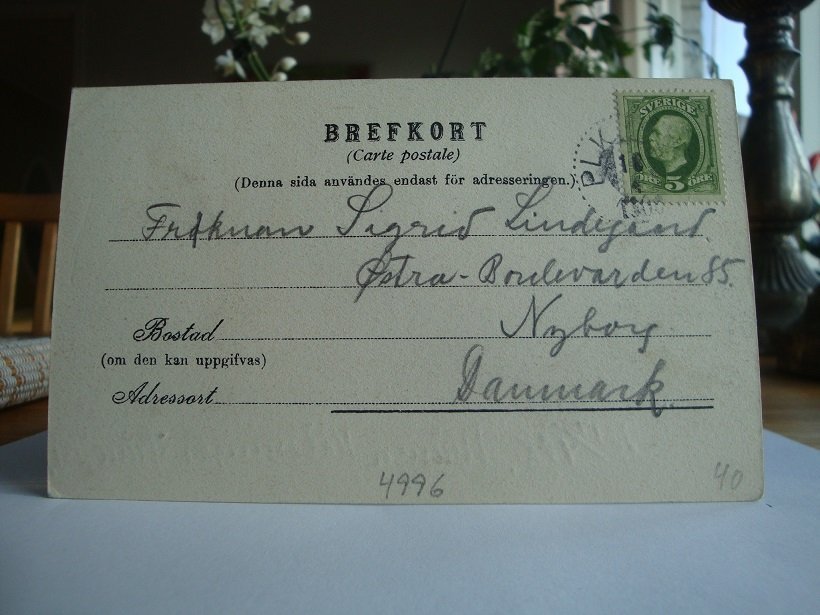 BREFKORT
(Carte postale)
(Denna sida användes endast för adresseringen.)
SVERIGE
ÖRE 5 ÖRE
PLK
10
Sigrid Lindegaard
Østra-Boulevarden 85.
Bostad Nyborg
(om den kan uppgifvas)
Adressort Danmark.
4996
40